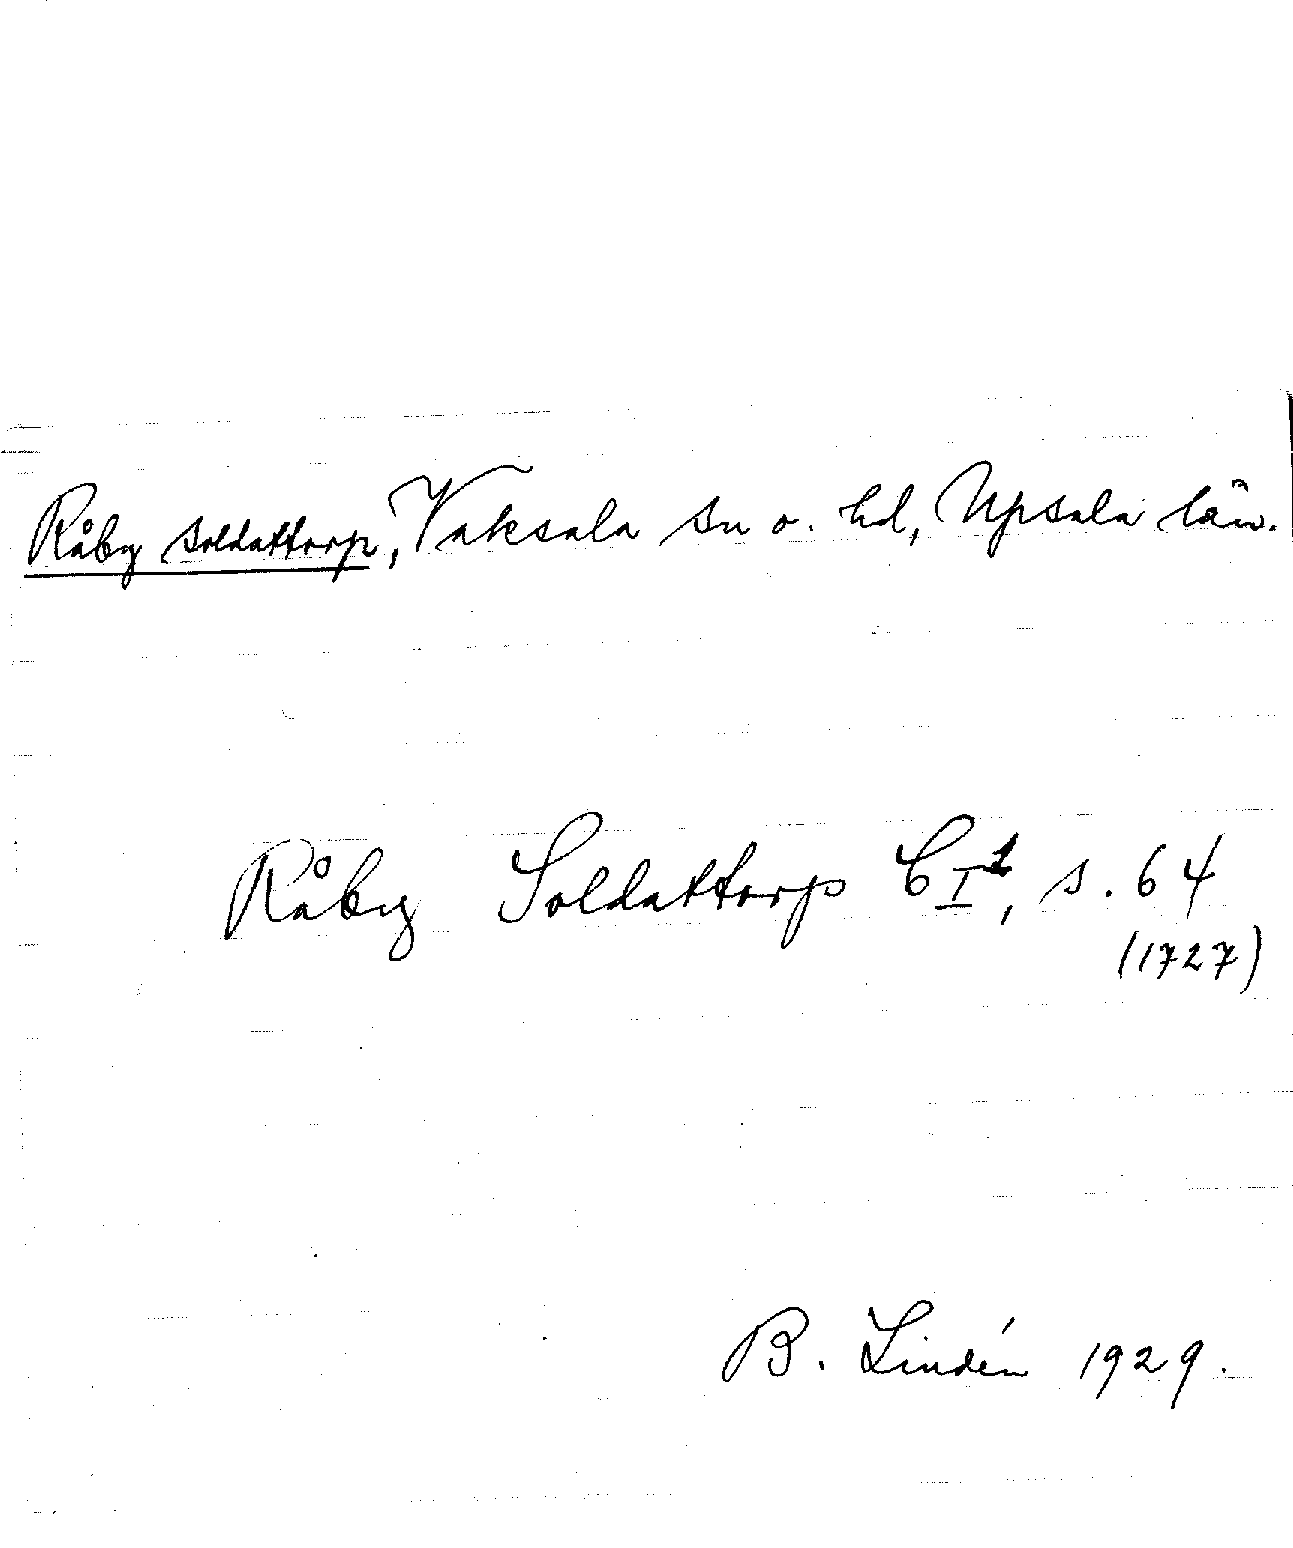 Råby soldattorp, Vaksala sn o. hd, Upsala län.
Råby Soldattorp C I¹, s. 64
(1727)
B. Lindén 1929.